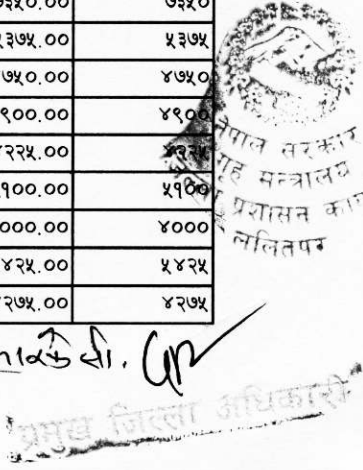 ७३५०.०० ७३५०
५३७५.०० ५३७५
७५०.०० ४७५०
९००.०० ४९००
२२५.०० ४२२५
१००.०० ५१००
०००.०० ४०००
४२५.०० ५४२५
२७५.०० ४२७५
नेपाल सरकार
गृह मन्त्रालय
प्रशासन का
ललितपुर
प्रमुख जिल्ला अधिकारी